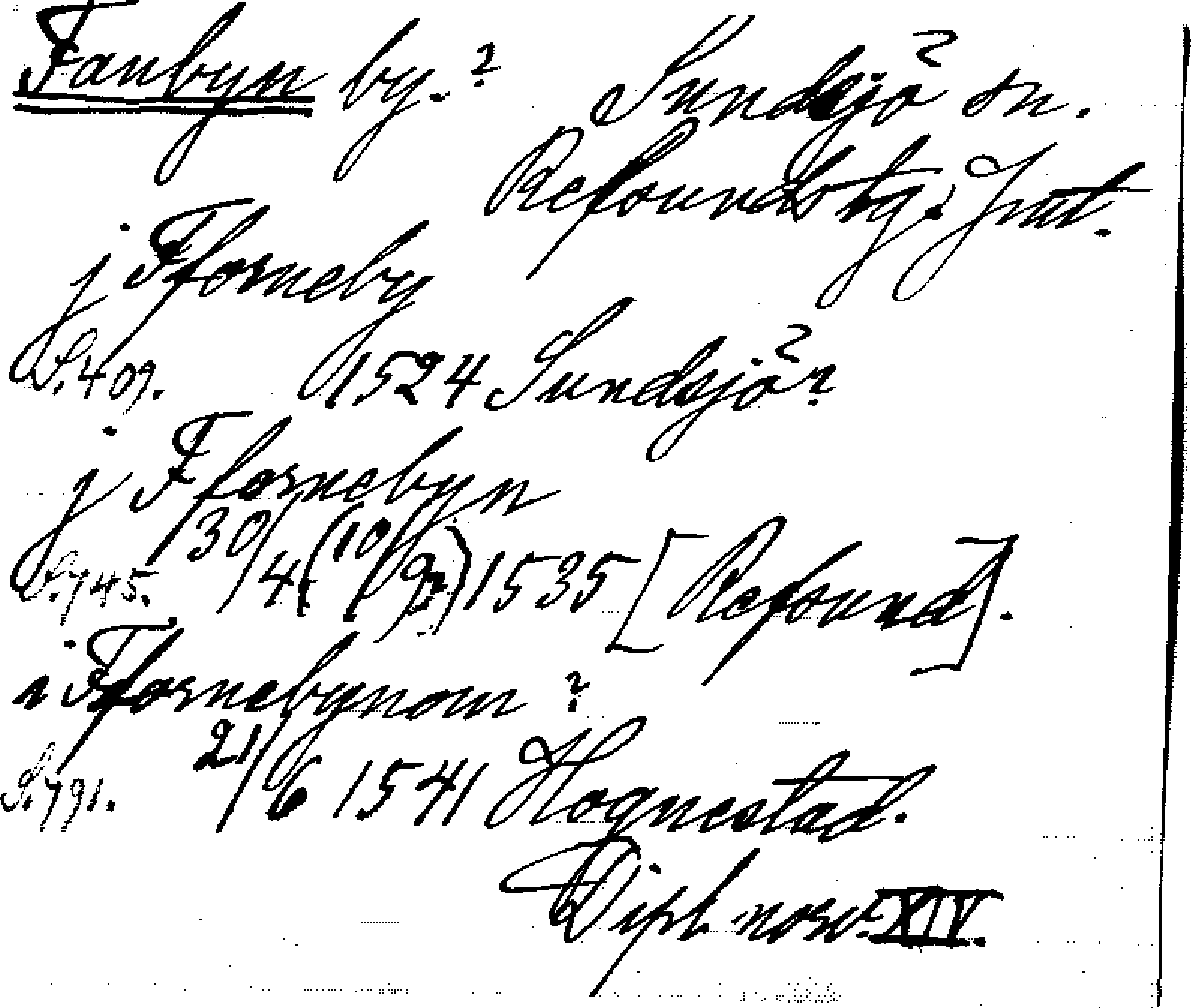 Fanbyn by.? Sundsjö sn.
Refsunds tg. Jmt.
j Fforneby
S. 409. 1524 Sundsjö?
j Ffornebyn
S. 745. 30/4 (10/9?) 1535 [Refsund].
i Ffornebynom ?
S. 791. 21/6 1541 Hognestad.
Dipl. norv. XIV.